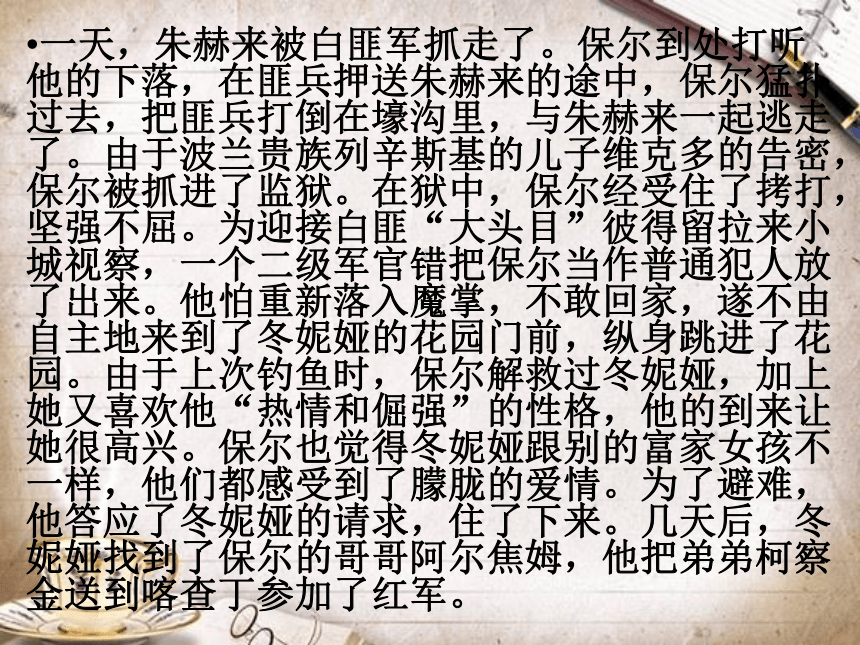 •一天，朱赫来被白匪军抓走了。保尔到处打听
他的下落，在匪兵押送朱赫来的途中，保尔猛扑
过去，把匪兵打倒在壕沟里，与朱赫来一起逃走
了。由于波兰贵族列辛斯基的儿子维克多的告密，
保尔被抓进了监狱。在狱中，保尔经受住了拷打，
坚强不屈。为迎接白匪“大头目”彼得留拉来小
城视察，一个二级军官错把保尔当作普通犯人放
了出来。他怕重新落入魔掌，不敢回家，遂不由
自主地来到了冬妮娅的花园门前，纵身跳进了花
园。由于上次钓鱼时，保尔解救过冬妮娅，加上
她又喜欢他“热情和倔强”的性格，他的到来让
她很高兴。保尔也觉得冬妮娅跟别的富家女孩不
一样，他们都感受到了朦胧的爱情。为了避难，
他答应了冬妮娅的请求，住了下来。几天后，冬
妮娅找到了保尔的哥哥阿尔焦姆，他把弟弟柯察
金送到喀查丁参加了红军。